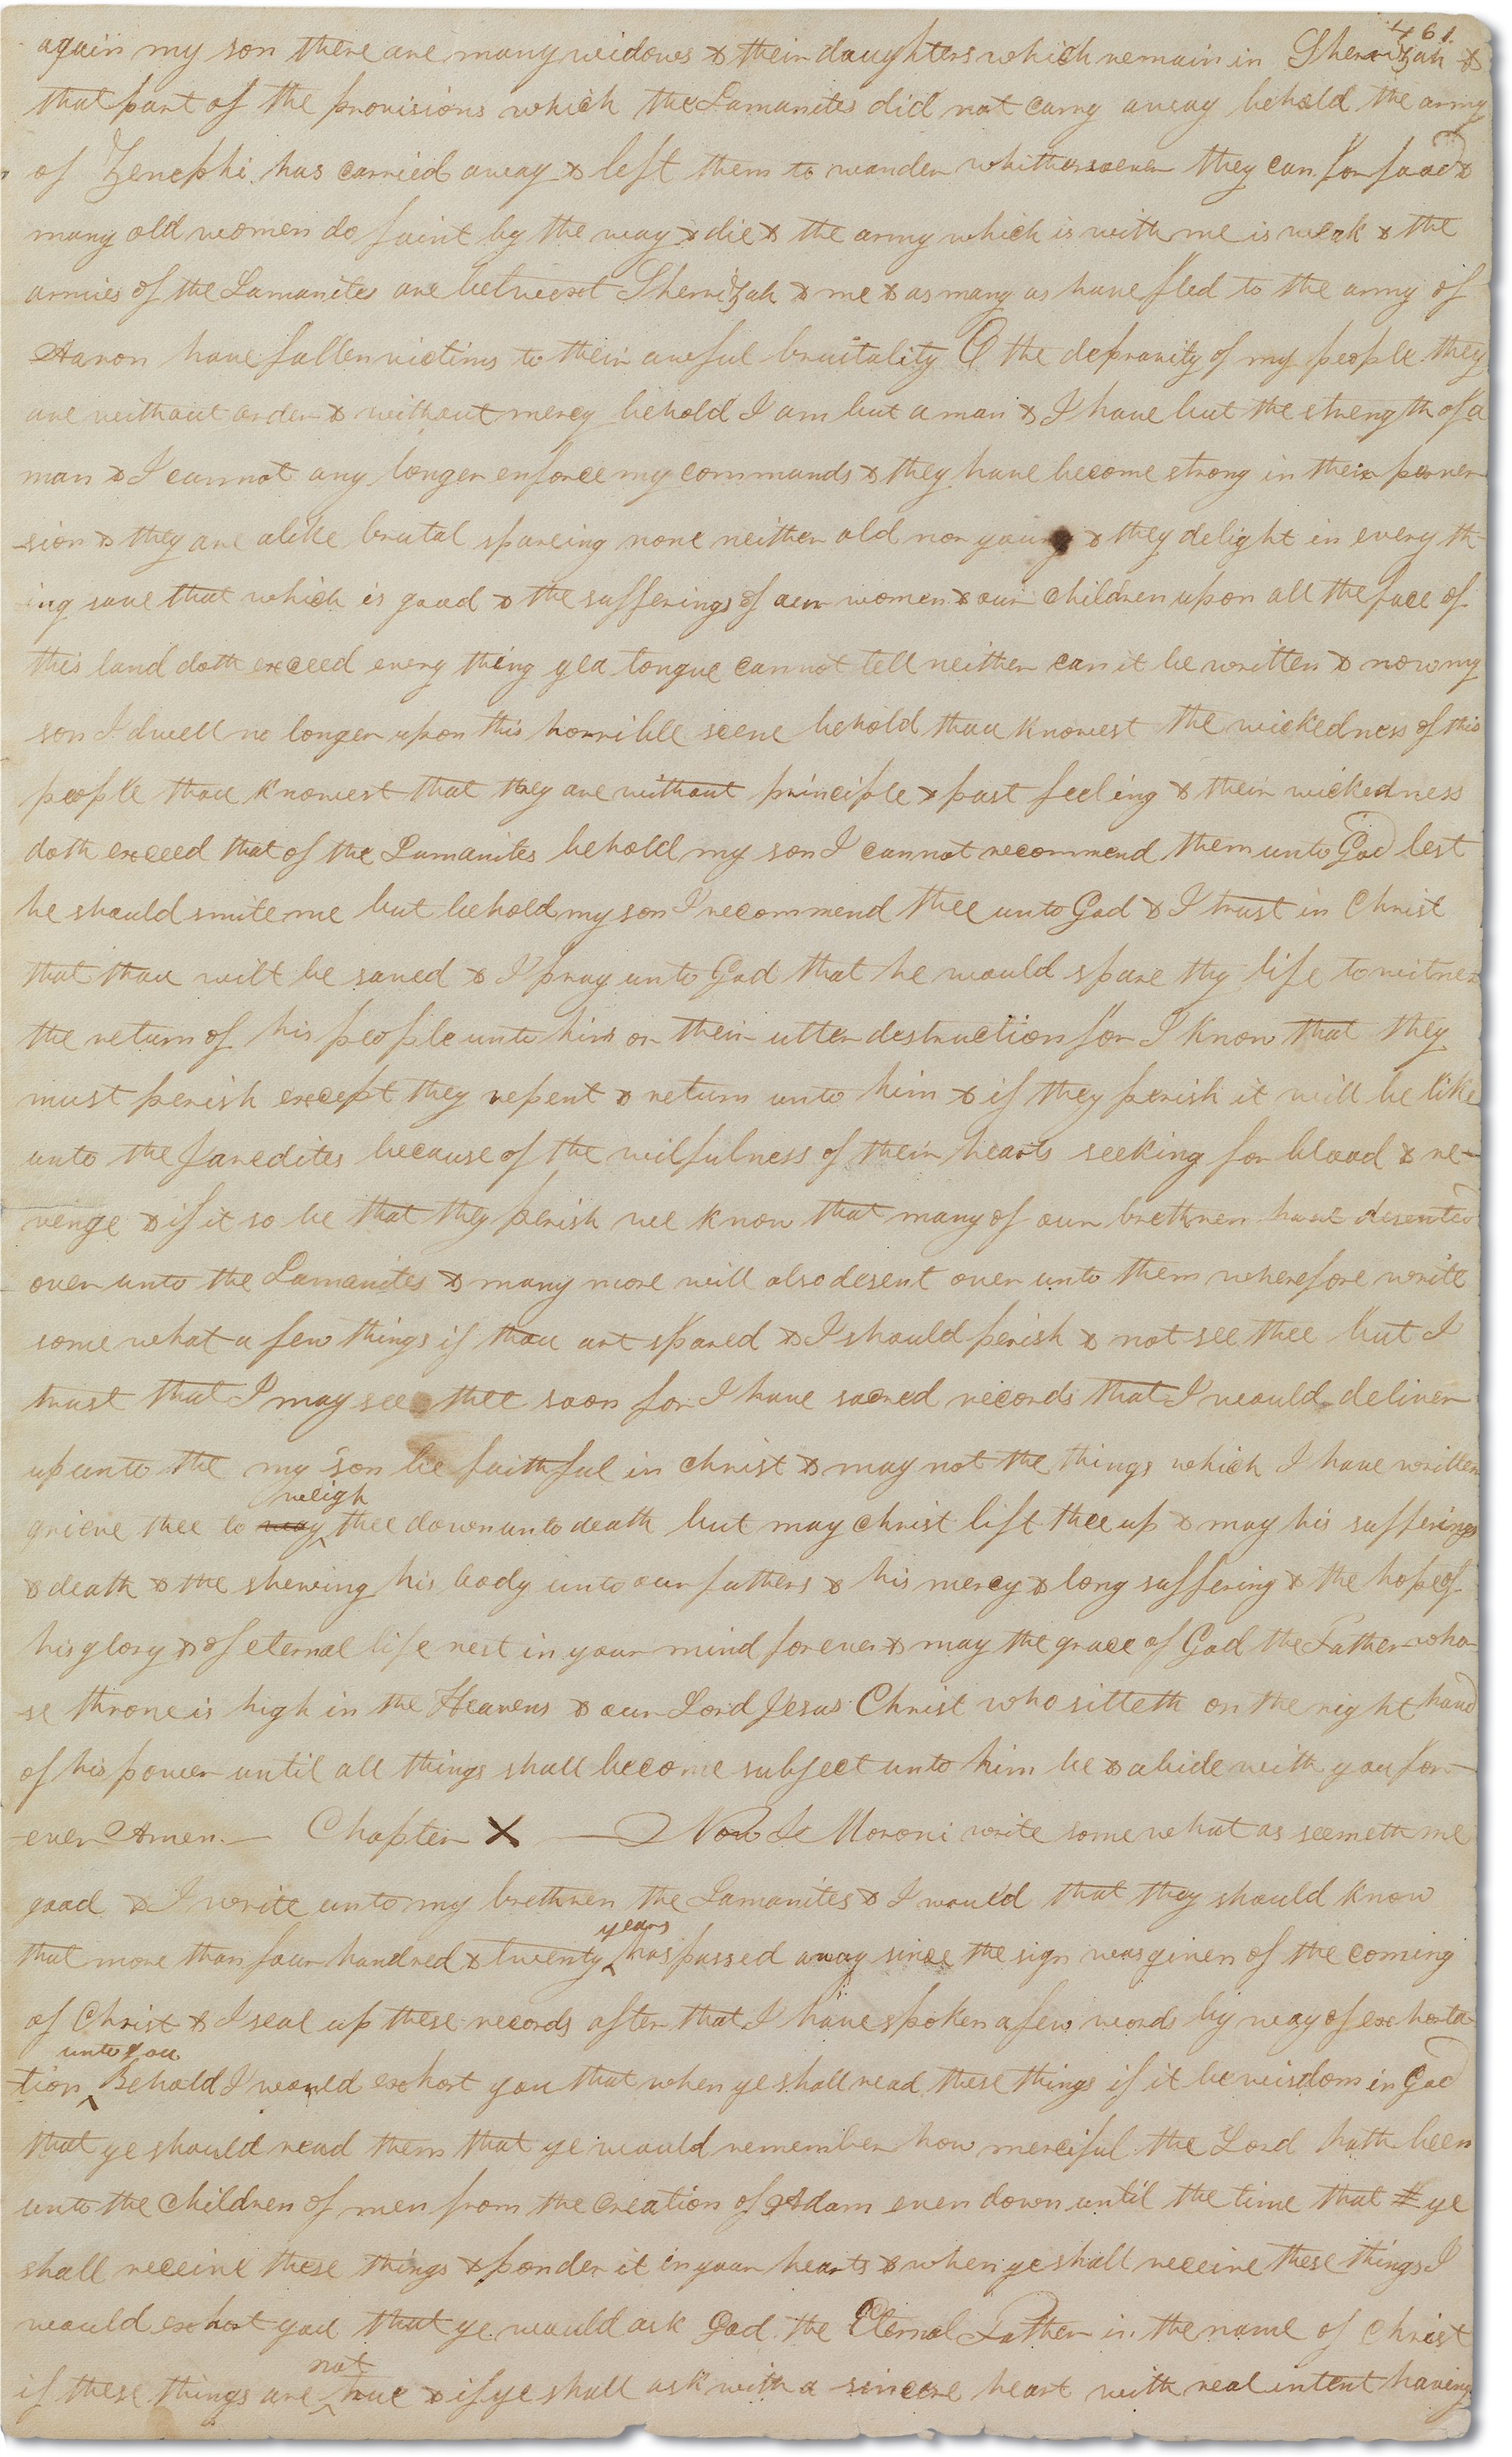 461.
again my son there are many widows & their daughters which remain in Sherrizah &
that part of the provisions which the Lamanites did not carry away behold the army
of Zenephi has carried away & left them to wander whithersoever they can for food &
many old women do faint by the way & die & the army which is with me is weak & the
armies of the Lamanites are betwixt Sherrizah & me & as many as have fled to the army of
Aaron have fallen victims to their awful brutality O the depravity of my people they
are without order & without mercy behold I am but a man & I have but the strength of a
man & I cannot any longer enforce my commands & they have become strong in their perver-
-sion & they are alike brutal spareing none neither old nor young & they delight in every th-
-ing save that which is good & the sufferings of our women & our children upon all the face of
this land doth exceed every thing yea tongue cannot tell neither can it be written & now my
son I dwell no longer upon this horrible scene behold thou knowest the wickedness of this
people thou knowest that they are without principle & past feeling & their wickedness
doth exceed that of the Lamanites behold my son I cannot recommend them unto God lest
he should smite me but behold my son I recommend thee unto God & I trust in Christ
that thou wilt be saved & I pray unto God that he would spare thy life to witness
the return of his people unto him or their utter destruction for I know that they
must perish except they repent & return unto him & if they perish it will be like
unto the Jaredites because of the wilfulness of their hearts seeking for blood & re-
venge & if it so be that they perish we know that many of our brethren have deserted
over unto the Lamanites & many more will also desert over unto them wherefore write
some what a few things if thou art spared & I should perish & not see thee but I
trust that I may see thee soon for I have sacred records that I would deliver
up unto the my son be faithful in christ & may not the things which I have written
weigh
grieve thee to way thee down unto death but may christ lift thee up & may his sufferings
& death & the shewing his body unto our fathers & his mercy & long suffering & the hope of
his glory & of eternal life rest in your mind forever & may the grace of God the Father who-
-se throne is high in the Heavens & our Lord Jesus Christ who sitteth on the right hand
of his power until all things shall become subject unto him be & abide with you for-
-ever Amen.— Chapter X — Now I Moroni write some what as seemeth me
good & I write unto my brethren the Lamanites & I would that they should know
years
that more than four hundred & twenty has passed away since the sign was given of the coming
of Christ & I seal up these records after that I have spoken a few words by way of exhorta-
unto you
-tion Behold I would exhort you that when ye shall read these things if it be wisdom in God
that ye should read them that ye would remember how merciful the Lord hath been
unto the children of men from the creation of Adam even down until the time that ye
shall receive these things & ponder it in your hearts & when ye shall receive these things I
would exhort you that ye would ask God the Eternal Father in the name of Christ
not
if these things are true & if ye shall ask with a sincere heart with real intent having